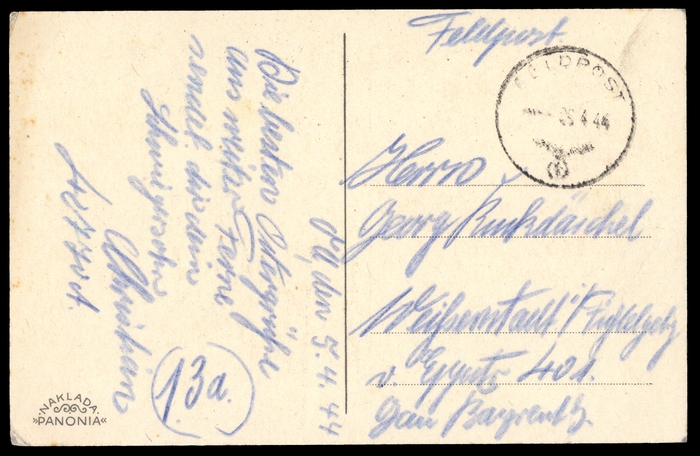 Feldpost.
FELDPOST
5.4.44
(b)
Herrn
Georg Ruckdäschel
Weißenstadt i/Fichtelgeb
v. 401.
Gau Bayreuth.
OU, den 5.4.44
Die besten Ostergrüße
aus weiter Ferne
sendet dir dein
Schwiegersohn
Christian
13a.
NAKLADA
»PANONIA«